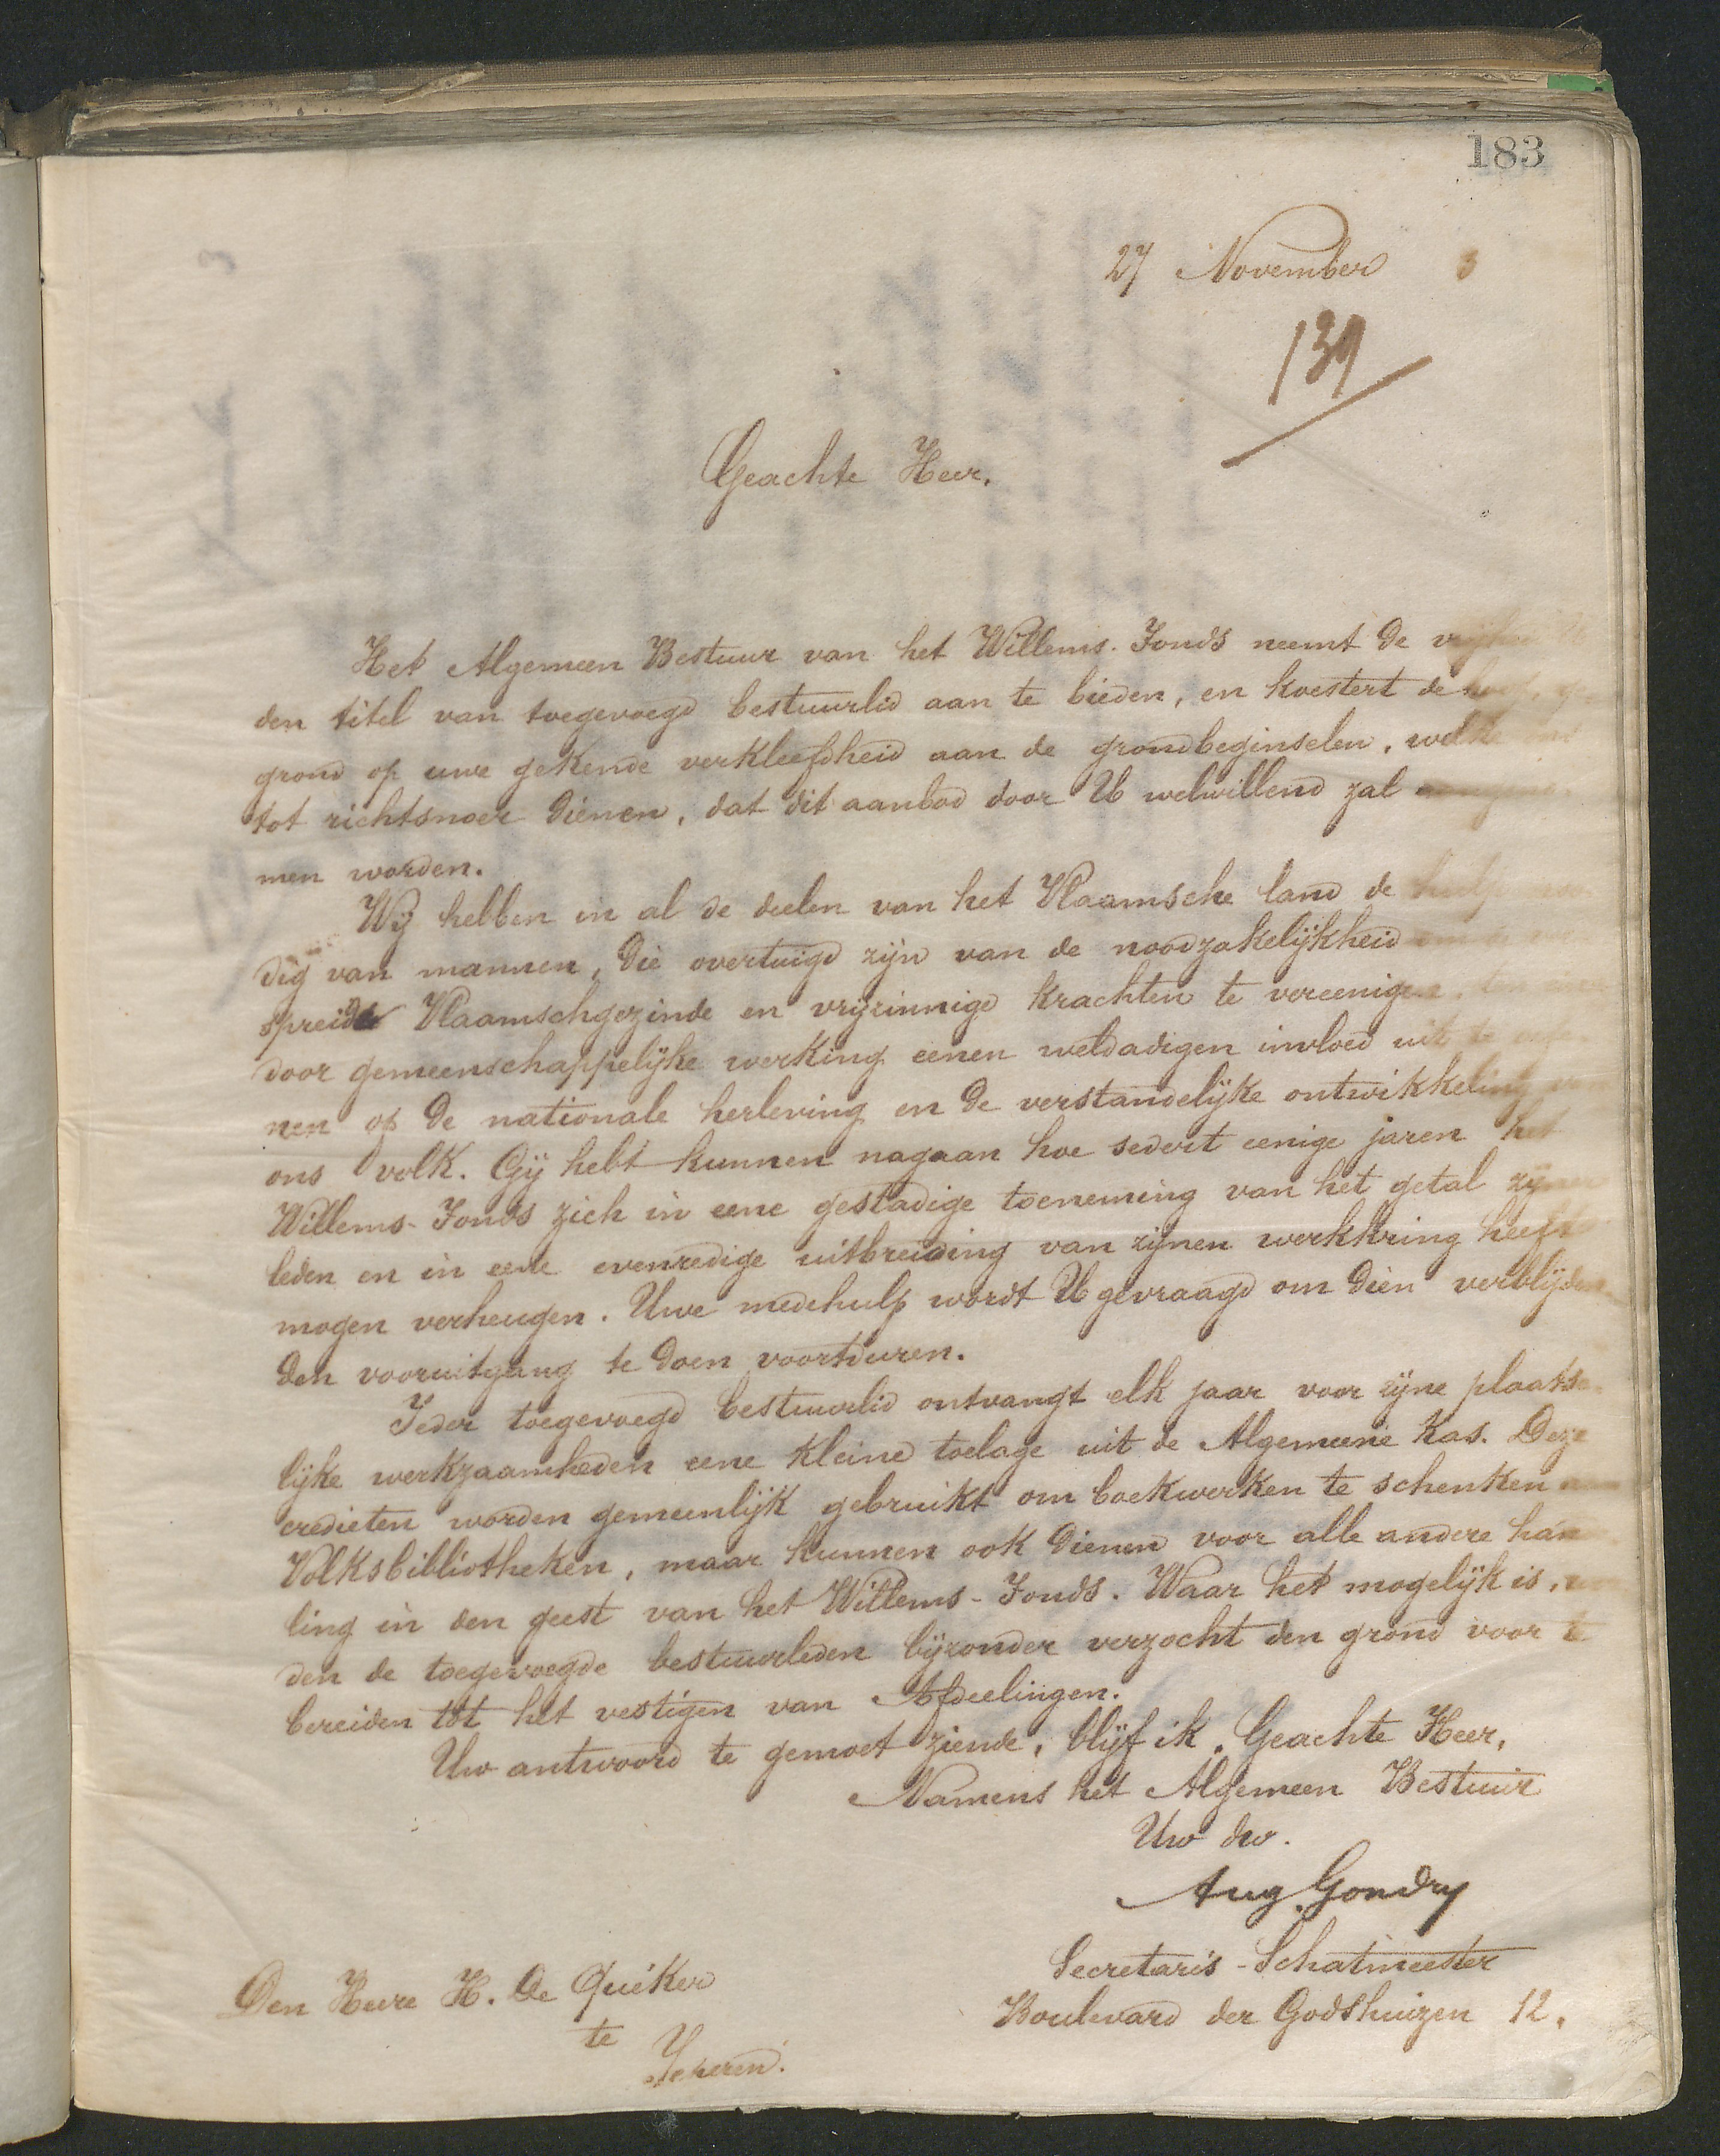 183
27 November 3
139
Geachte Heer,
Het Algemeen Bestuur van het Willems-Fonds neemt de
den titel van toegevoegd bestuurlid aan te bieden, en koestert de
grond op uwe gekende verkleefdheid aan de grondbeginselen, welke ons
tot richtsnoer dienen, dat dit aanbod door U welwillend zal
men worden.
Wij hebben in al de deelen van het Vlaamsche land de
dig van mannen, die overtuigd zijn van de noodzakelijkheid
spreide Vlaamschgezinde en vrijzinnige krachten te vereenigen,
door gemeenschappelijke werking eenen weldadigen invloed uit te
nen op de nationale herleving en de verstandelijke ontwikkeling
ons volk. Gij hebt kunnen nagaan hoe sedert eenige jaren het
Willems-Fonds zich in eene gestadige toeneming van het getal zijner
leden en in eene evenredige uitbreiding van zijnen werkkring heeft
mogen verheugen. Uwe medehulp wordt U gevraagd om dien verblijden
den vooruitgang te doen voortduren.
Ieder toegevoegd bestuurlid ontvangt elk jaar voor zijne plaatse-
lijke werkzaamheden eene kleine toelage uit de Algemeene kas. Deze
credieten worden gemeenlijk gebruikt om boekwerken te schenken
Volksbibliotheken, maar kunnen ook dienen voor alle andere han
ling in den geest van het Willems-Fonds. Waar het mogelijk is,
den de toegevoegde bestuurleden bijzonder verzocht den grond voor te
bereiden tot het vestigen van Afdeelingen.
Uw antwoord te gemoet ziende, blijf ik, Geachte Heer,
Namens het Algemeen Bestuur
Uw dw.
Aug. Gondry
Secretaris-Schatmeester
Boulevard der Godshuizen 12.
Den Heere H. De Queker
te
Yperen.